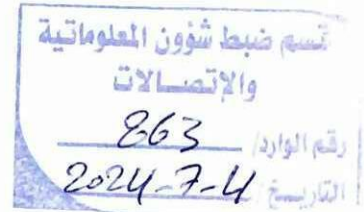 قسم ضبط شؤون المعلوماتية
والإتصالات
رقم الوارد/ 863
التاريخ/ 2024-7-4